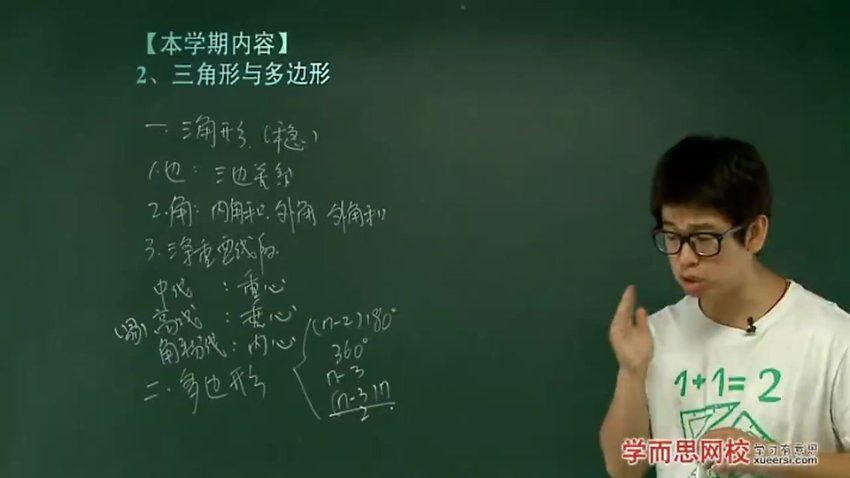 【本学期内容】
2、三角形与多边形
一. 三角形 (稳)
1.边: 三边关系
2.角: 内角和. 外角 外角和
3. 三条重要线段
中线 : 重心
高线 : 垂心
角平分线: 内心
二. 多边形
(n-2)180°
360°
n-3
(n-3)n
2
1+1=2
学而思网校 学习有意思
xueersi.com